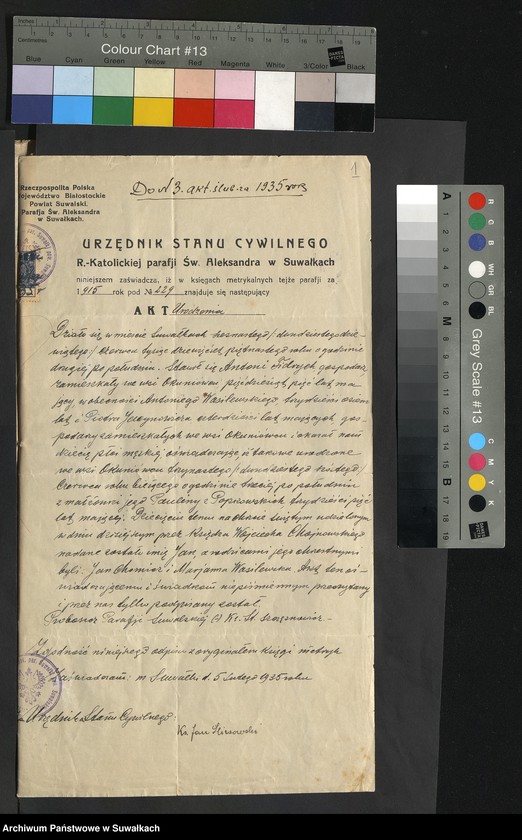 Inches
Centimetres
Colour Chart #13
Blue Cyan Green Yellow Red Magenta White 3/Color Black
Do № 3. akt. ślub. za 1935 rok
1
Rzeczpospolita Polska
Województwo Białostockie
Powiat Suwalski.
Parafja Św. Aleksandra
w Suwałkach.
URZĘDNIK STANU CYWILNEGO
R.-Katolickiej parafji Św. Aleksandra w Suwałkach
niniejszem zaświadcza, iż w księgach metrykalnych tejże parafji za
1915 rok pod № 229 znajduje się następujący
AKT Urodzenia
Działo się w mieście Suwałkach szesnastego / dwudziestego dzie-
wiątego / czerwca tysiąc dziewięćset piętnastego roku o godzinie
drugiej po południu. Stawił się Antoni gospodarz
zamieszkały we wsi Okuniowcu pięćdziesiąt pięć lat ma-
jący w obecności Antoniego Wasilewskiego, trzydzieści osiem
lat i Piotra czterdzieści lat mających gos-
podarzy zamieszkałych we wsi Okuniowcu i okazał nam
dziecię płci męskiej oświadczając iż takowe urodzone
we wsi Okuniowcu trzynastego / dwudziestego szóstego /
czerwca roku bieżącego o godzinie trzeciej po południu
z małżonki jego Pauliny z trzydzieści pięć
lat mającej. Dziecięciu temu na chrzcie świętym udzielonym
w dniu dzisiejszym przez Księdza Wojciecha
nadane zostało imię Jan, a rodzicami jego chrzestnymi
byli: Jan Chomicz i Marjanna Wasilewska. Akt ten oś-
wiadczającemu i świadkom niepiśmiennym przeczytany
i przez nas tylko podpisany został.
Proboszcz Parafji Suwalskiej (-) Ks. St.
Zgodność niniejszego odpisu z oryginałem księgi metryk
zaświadczam: m. Suwałki d. 5 lutego 1935 roku
Urzędnik Stanu Cywilnego:
Ks. Jan
A 1 2 3 4 5 6 M 8 9 10 11 12 13 14 15 B 17 18 19
R
G
B
WH
GR
BL
Grey Scale #13
C
M
Y
K
Archiwum Państwowe w Suwałkach